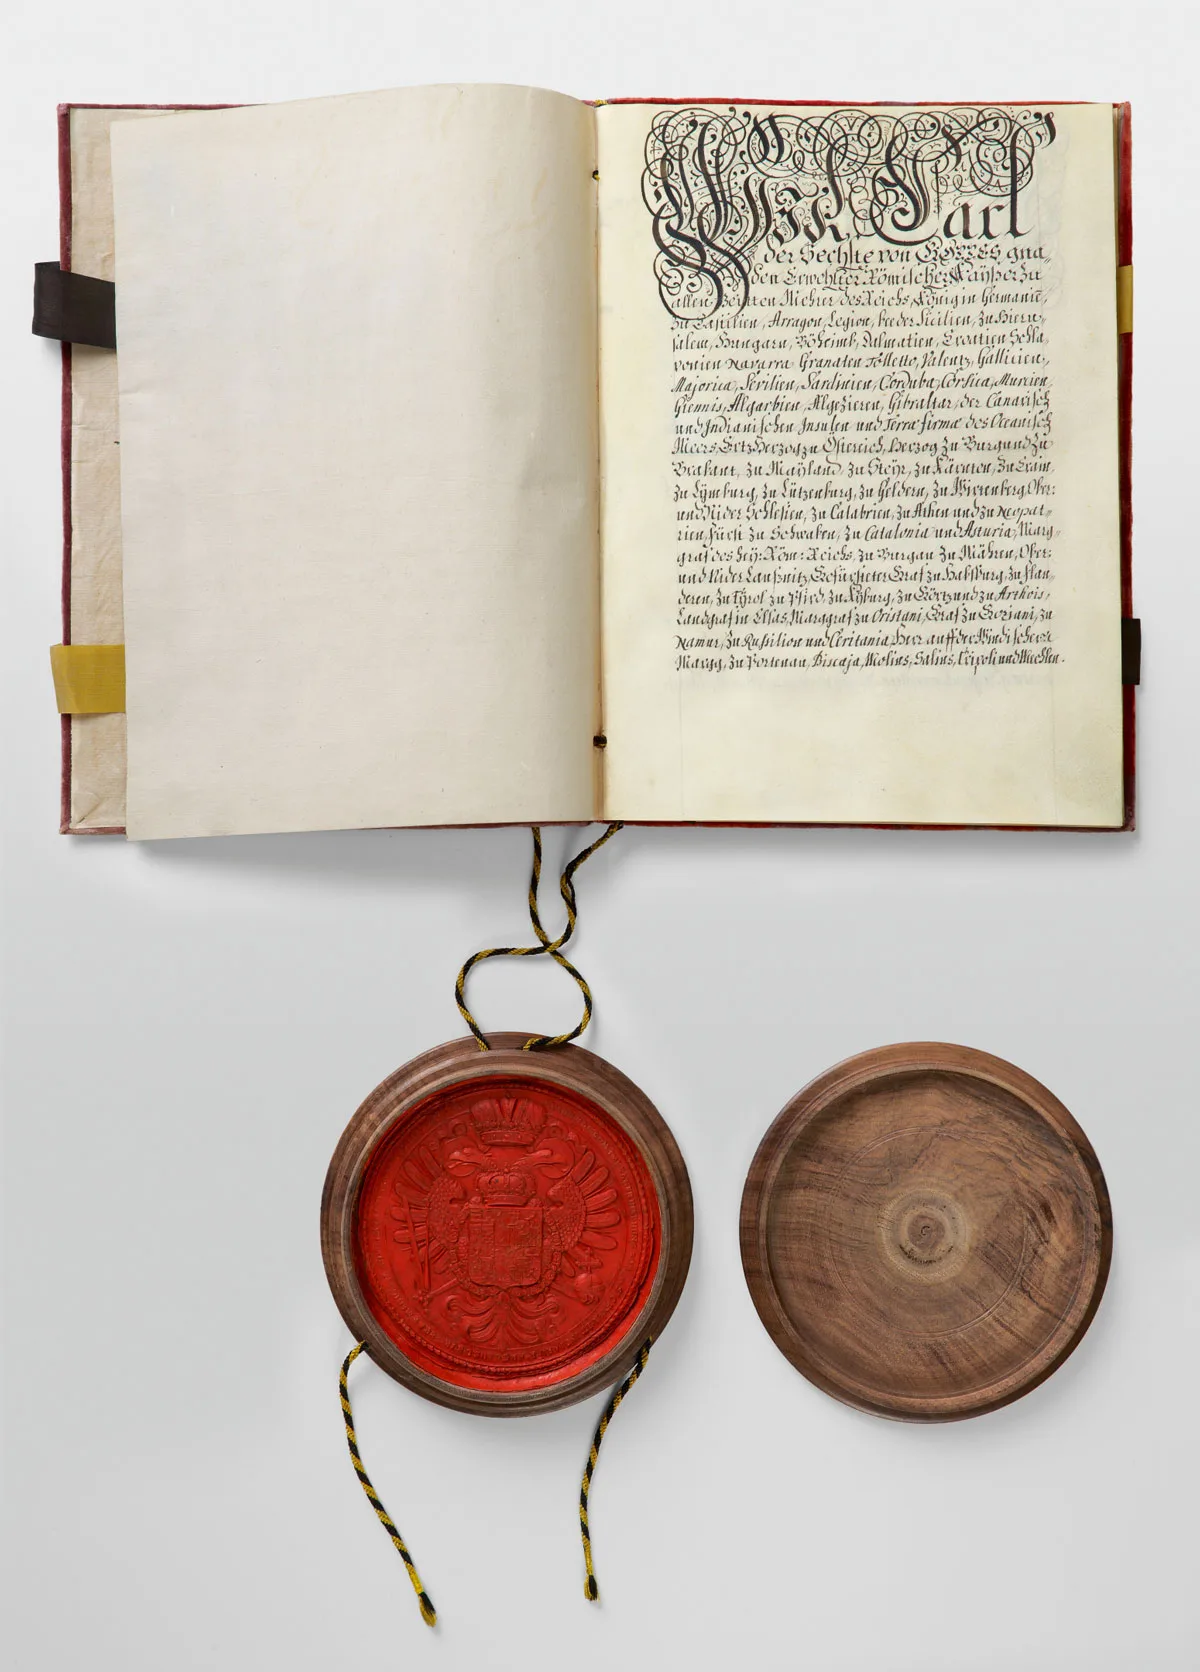 Wir Carl
der Sechste von GOTTES gna-
den Erwehlter Römischer Kayßer zu
allen Zeÿtten Mehrer des Reichs, König in Germanien,
zu Castilien, Arragon, Legion, beeder Sicilien, zu Hieru-
salem, Hungarn, Böheimb, Dalmatien, Croatien Scla-
vonien Navarra Granaten Tolletto, Valentz, Gallicien,
Majorica, Sevilien, Sardinien, Corduba, Corsica, Murcien,
Giennis, Algarbien, Algezieren, Gibraltar, der Canarisch
und Indianischen Insulen und Terræ firmæ des Oceanisch
Meers, Ertzherzog zu Österreich, Herzog zu Burgund zu
Brabant, zu Maÿland, zu Steÿr, zu Kärnten, zu Crain,
zu Lÿmburg, zu Lützenburg, zu Geldern, zu Würtenberg, Ober:
und Nider Schlesien, zu Calabrien, zu Athen und zu Neopat-
rien, Fürst zu Schwaben, zu Catalonia und Asturia, Marg-
graf des heÿ: Röm: Reichs, zu Burgau zu Mähren, Ober:
und Nider Laußnitz, Gefürsteter Graf zu Habsburg, zu Flan-
deren, zu Tÿrol zu Pfird, zu Kÿburg, zu Görtz und zu Arthois,
Landgraf in Elsas, Marggraf zu Oristani, Graf zu Goziani, zu
Namur, zu Rusilion und Ceritania, Herr auff der Windischen
Margg, zu Portenau, Biscaja, Molins, Salins, Tripoli und Mechlen.